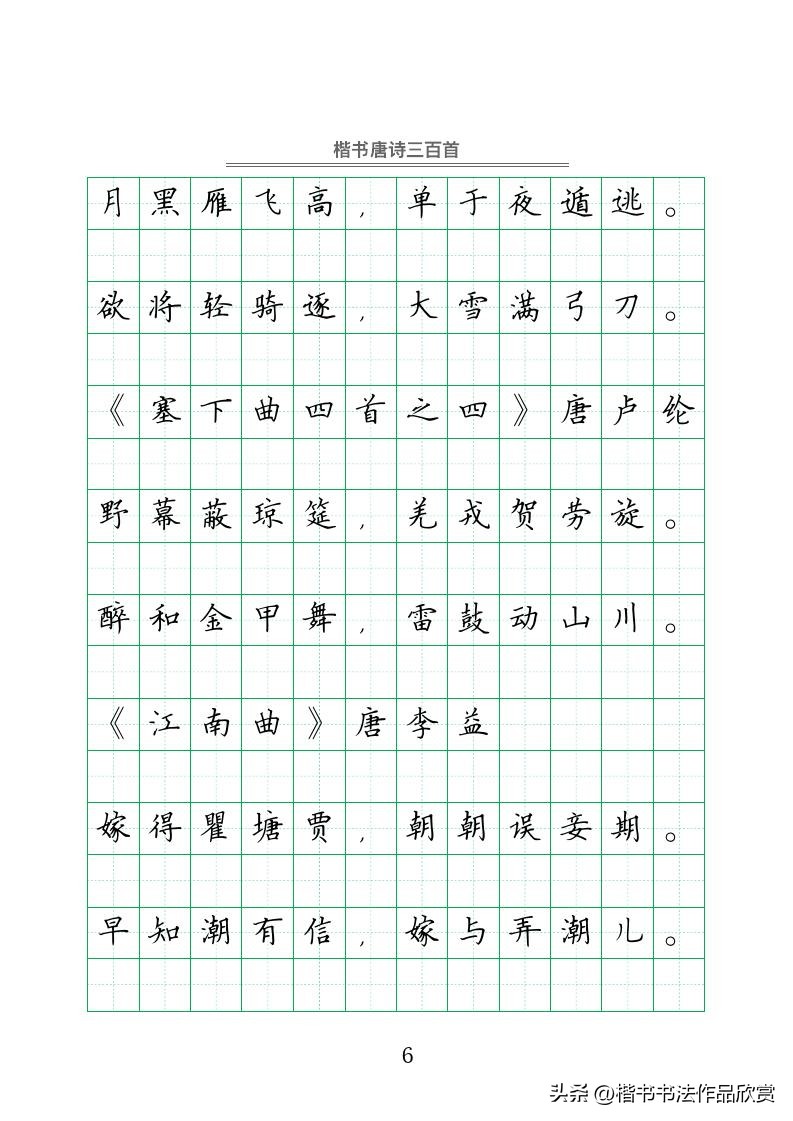 楷书唐诗三百首
月黑雁飞高，单于夜遁逃。
欲将轻骑逐，大雪满弓刀。
《塞下曲四首之四》唐卢纶
野幕蔽琼筵，羌戎贺劳旋。
醉和金甲舞，雷鼓动山川。
《江南曲》唐李益
嫁得瞿塘贾，朝朝误妾期。
早知潮有信，嫁与弄潮儿。
6
头条 @楷书书法作品欣赏